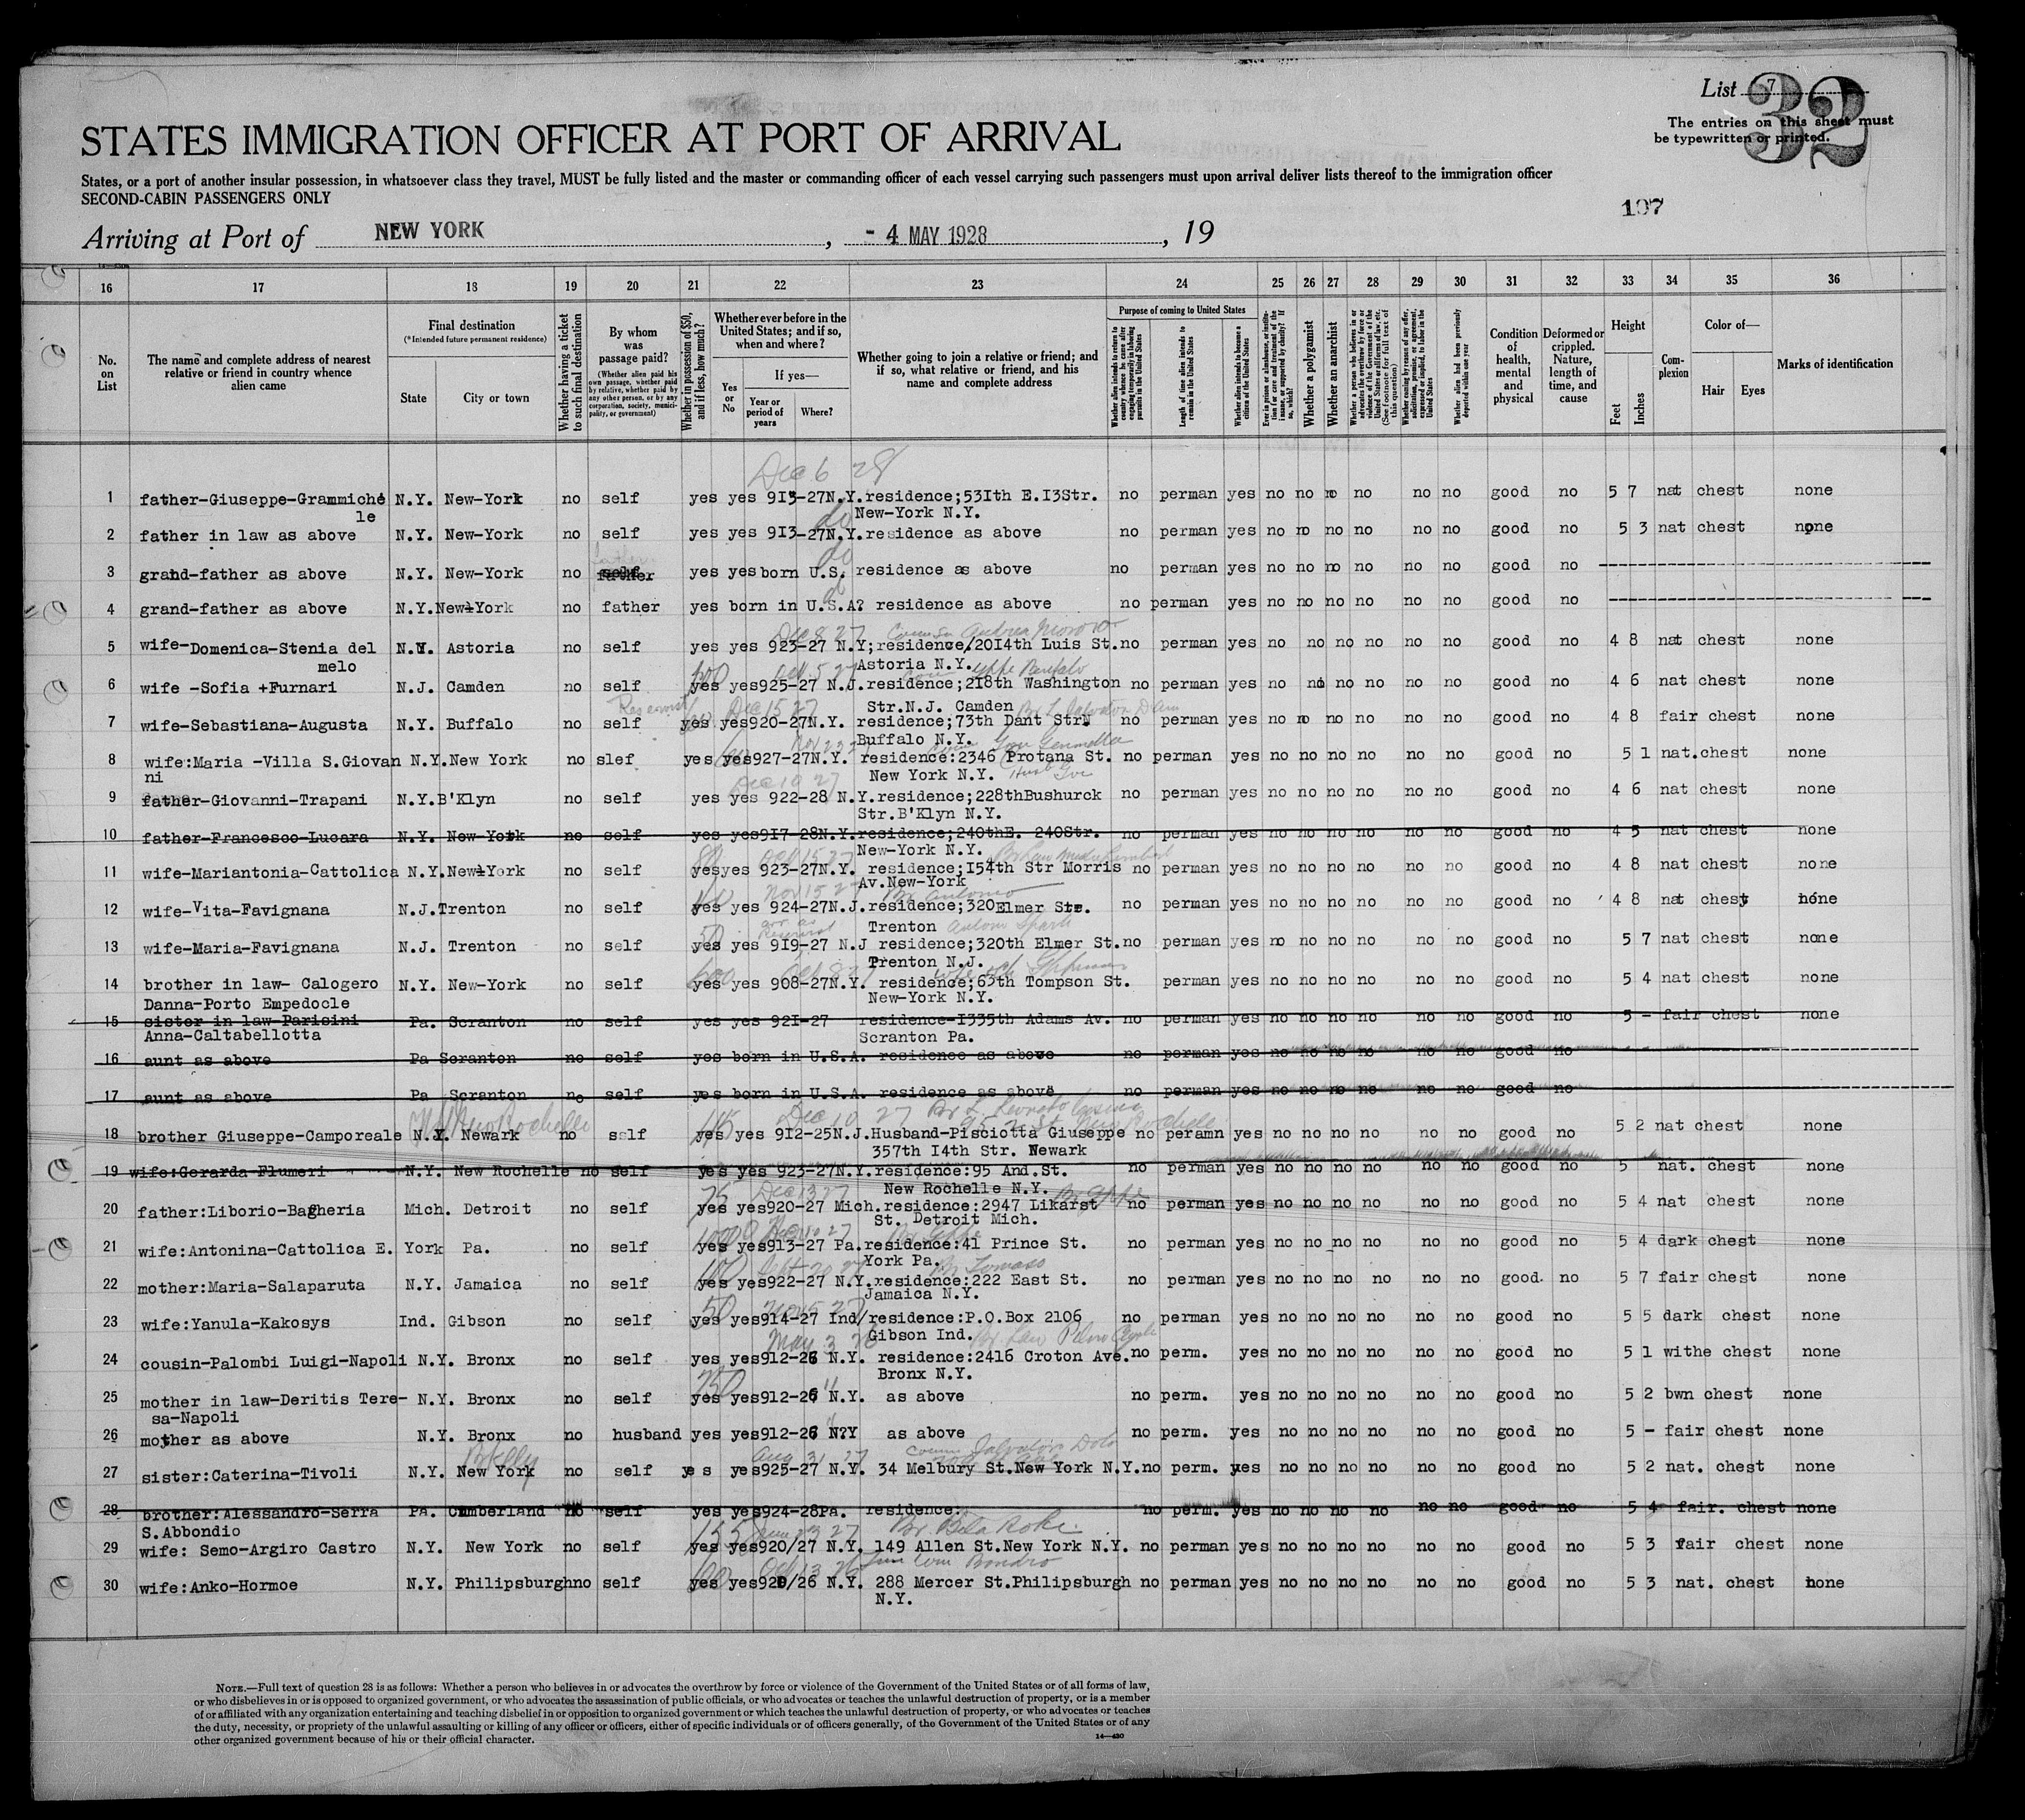 List 7
32
The entries on this sheet must
be typewritten or printed.
STATES IMMIGRATION OFFICER AT PORT OF ARRIVAL
States, or a port of another insular possession, in whatsoever class they travel, MUST be fully listed and the master or commanding officer of each vessel carrying such passengers must upon arrival deliver lists thereof to the immigration officer
SECOND-CABIN PASSENGERS ONLY
107
Arriving at Port of NEW YORK, - 4 MAY 1928, 19
16 17 18 19 20 21 22 23 24 25 26 27 28 29 30 31 32 33 34 35 36
No. on List
The name and complete address of nearest relative or friend in country whence alien came
Final destination
(*Intended future permanent residence)
State
City or town
Whether having a ticket to such final destination
By whom was passage paid?
(Whether alien paid his own passage, whether paid by relative, whether paid by any other person, or by any corporation, society, municipality, or government)
Whether in possession of $50, and if less, how much?
Whether ever before in the United States; and if so, when and where?
Yes or No
If yes—
Year or period of years
Where?
Whether going to join a relative or friend; and if so, what relative or friend, and his name and complete address
Purpose of coming to United States
Whether alien intends to return to country whence he came after engaging temporarily in laboring pursuits in the United States
Length of time alien intends to remain in the United States
Whether alien intends to become a citizen of the United States
Whether a polygamist
Whether an anarchist
Whether alien had been previously deported within one year
Condition of health, mental and physical
Deformed or crippled. Nature, length of time, and cause
Height
Feet
Inches
Complexion
Color of—
Hair
Eyes
Marks of identification
Dec 6 28
1 father-Giuseppe-Grammiche N.Y. New-York no self yes yes 913-27N.Y.residence;53Ith E.I3Str. no perman yes no no no no no no good no 5 7 nat chest none
le New-York N.Y.
2 father in law as above N.Y. New-York no self yes yes 9I3-27N.Y.residence as above no perman yes no no no no no no good no 5 3 nat chest none
3 grand-father as above N.Y. New-York no father yes yes born U.S. residence as above no perman yes no no no no no no good no
4 grand-father as above N.Y.New-York no father yes born in U.S.A? residence as above no perman yes no no no no no no good no
5 wife-Domenica-Stenia del N.Y. Astoria no self yes yes 923-27 N.Y;residence,20I4th Luis St.no perman yes no no no no no no good no 4 8 nat chest none
melo Astoria N.Y.
6 wife -Sofia +Furnari N.J. Camden no self yes yes925-27 N.J.residence;2I8th Washington no perman yes no no no no no no good no 4 6 nat chest none
Str.N.J. Camden
7 wife-Sebastiana-Augusta N.Y. Buffalo no self yes yes920-27N.Y. residence;73th Dant StrN no perman yes no no no no no no good no 4 8 fair chest none
Buffalo N.Y.
8 wife:Maria -Villa S.Giovan N.Y.New York no slef yes yes927-27N.Y. residence:2346 Protana St. no perman yes no no no no no no good no 5 1 nat.chest none
ni New York N.Y.
9 father-Giovanni-Trapani N.Y.B'Klyn no self yes yes 922-28 N.Y.residence;228thBushurck no perman yes no no no no no no good no 4 6 nat chest none
Str.B'Klyn N.Y.
10 father-Francesco-Lucara N.Y. New-York no self yes yes9I7-28N.Y.residence;240thE. 240Str. no perman yes no no no no no no good no 4 5 nat chest none
New-York N.Y.
11 wife-Mariantonia-Cattolica N.Y.New-York no self yesyes 923-27N.Y. residence;I54th Str Morris no perman yes no no no no no no good no 4 8 nat chest none
Av.New-York
12 wife-Vita-Favignana N.J.Trenton no self yes yes 924-27N.J.residence;320Elmer Str. no perman yes no no no no no no good no 4 8 nat chest none
Trenton
13 wife-Maria-Favignana N.J. Trenton no self yes yes 9I9-27 N.J residence;320th Elmer St.no perman yes no no no no no no good no 5 7 nat chest none
Trenton N.J.
14 brother in law- Calogero N.Y. New-York no self yes yes 908-27N.Y. residence;63th Tompson St. perman yes no no no no no no good no 5 4 nat chest none
Danna-Porto Empedocle New-York N.Y.
15 sister in law-Parisini Pa. Scranton no self yes yes 92I-27 residence-I335th Adams Av. no perman yes no no no no no no good no 5 - fair chest none
Anna-Caltabellotta Scranton Pa.
16 aunt as above Pa Scranton no self yes born in U.S.A. residence as above no perman yes no no no no no no good no
17 aunt as above Pa Scranton no self yes born in U.S.A. residence as above no perman yes no no no no no no good no
18 brother Giuseppe-Camporeale N.Y. Newark no self yes yes 9I2-25N.J.Husband-Pisciotta Giuseppe no peramn yes no no no no no no good no 5 2 nat chest none
357th I4th Str. Newark
19 wife:Gerarda-Flumeri N.Y. New Rochelle no self yes yes 923-27N.Y.residence:95 And.St. no perman yes no no no no no no good no 5 nat. chest none
New Rochelle N.Y.
20 father:Liborio-Bagheria Mich. Detroit no self yes yes920-27 Mich.residence:2947 Likarst no perman yes no no no no no no good no 5 4 nat chest none
St. Detroit Mich.
21 wife:Antonina-Cattolica E. York Pa. no self yes yes913-27 Pa.residence:41 Prince St. no perman yes no no no no no no good no 5 4 dark chest none
York Pa.
22 mother:Maria-Salaparuta N.Y. Jamaica no self yes yes922-27 N.Y.residence:222 East St. no perman yes no no no no no no good. no 5 7 fair chest none
Jamaica N.Y.
23 wife:Yanula-Kakosys Ind. Gibson no self yes yes914-27 Ind/residence:P.O.Box 2106 no perman yes no no no no no no good no 5 5 dark chest none
Gibson Ind.
24 cousin-Palombi Luigi-Napoli N.Y. Bronx no self yes yes912-26 N.Y. residence:2416 Croton Ave.no perm. yes no no no no no no good no 5 1 withe chest none
Bronx N.Y.
25 mother in law-Deritis Tere- N.Y. Bronx no self yes yes912-26 N.Y. as above no perm. yes no no no no no no good no 5 2 bwn chest none
sa-Napoli
26 mother as above N.Y. Bronx no husband yes yes912-26 N?Y as above no perm. yes no no no no no no good no 5 - fair chest none
27 sister:Caterina-Tivoli N.Y. New York no self ye s yes925-27 N.Y. 34 Melbury St.New York N.Y.no perm. yes no no no no no no good no 5 2 nat. chest none
28 brother:Alessandro-Serra Pa. Cumberland no self yes yes924-28Pa. residence: no perm. yes no no no no no no good no 5 4 fair. chest none
S.Abbondio
29 wife: Semo-Argiro Castro N.Y. New York no self yes yes920/27 N.Y. 149 Allen St.New York N.Y. no perman yes no no no no no no good no 5 3 fair chest none
30 wife:Anko-Hormoe N.Y. Philipsburghno self yes yes920/26 N.Y. 288 Mercer St.Philipsburgh no perman yes no no no no no no good no 5 3 nat. chest none
N.Y.
NOTE.—Full text of question 28 is as follows: Whether a person who believes in or advocates the overthrow by force or violence of the Government of the United States or of all forms of law,
or who disbelieves in or is opposed to organized government, or who advocates the assassination of public officials, or who advocates or teaches the unlawful destruction of property, or is a member
of or affiliated with any organization entertaining and teaching disbelief in or opposition to organized government or which teaches the unlawful destruction of property, or who advocates or teaches
the duty, necessity, or propriety of the unlawful assaulting or killing of any officer or officers, either of specific individuals or of officers generally, of the Government of the United States or of any
other organized government because of his or their official character.
14—430